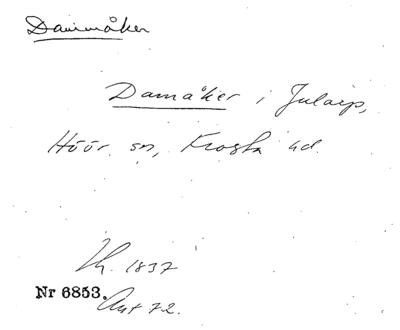 Dammåker
Damåker i Jularp,
Höör sn, Frosta hd.
Th. 1837
Nr 6853.
Ant 72.